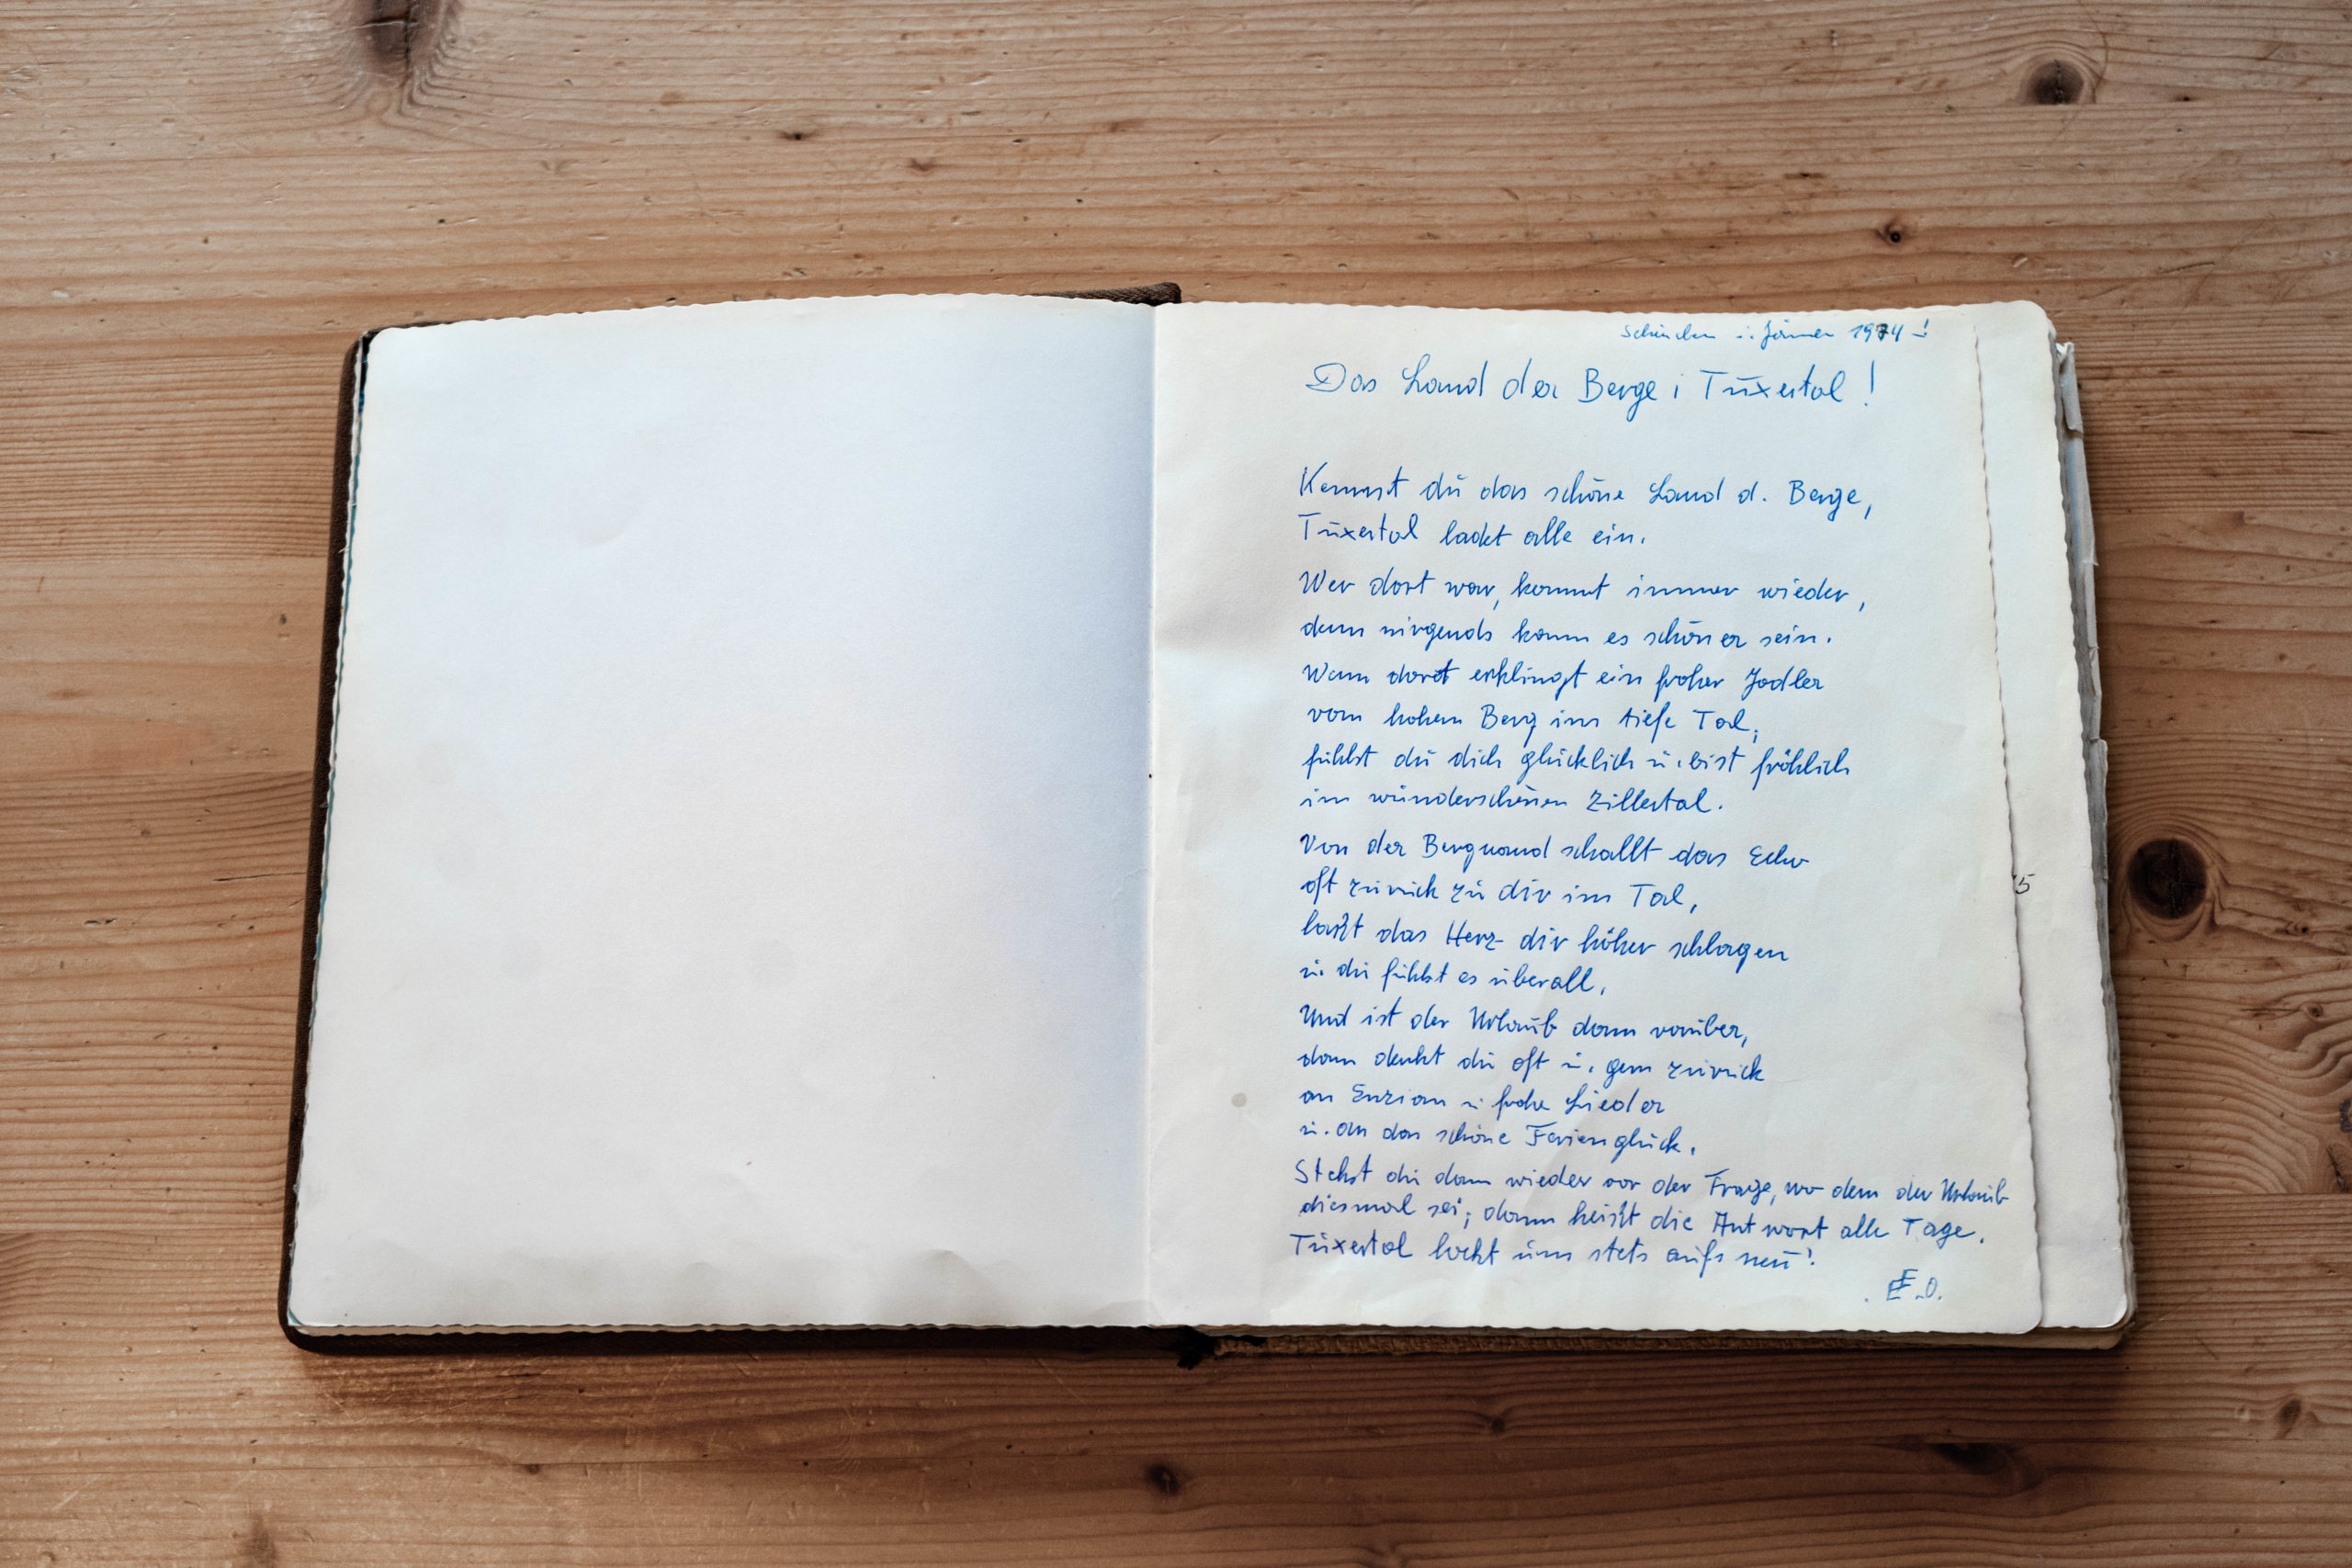 i. Jänner 1974 -!
Das Land der Berge i Tuxertal !
Kennst du das schöne Land d. Berge,
Tuxertal ladet alle ein.
Wer dort war, kommt immer wieder,
denn nirgends kann es schöner sein.
Wenn dort erklingt ein froher Jodler
vom hohen Berg ins tiefe Tal,
fühlst du dich glücklich u. bist fröhlich
im wunderschönen Zillertal.
Von der Bergwand schallt das Echo
oft zurück zu dir ins Tal,
laßt das Herz dir höher schlagen
u. du fühlst es überall.
Und ist der Urlaub dann vorüber,
dann denkt du oft u. gern zurück
an Enzian u frohe Lieder
u. an das schöne Ferienglück.
Stehst du dann wieder vor der Frage, wo denn der Urlaub
diesmal sei; dann heißt die Antwort alle Tage.
Tuxertal lockt uns stets aufs neu!
E.O.
5